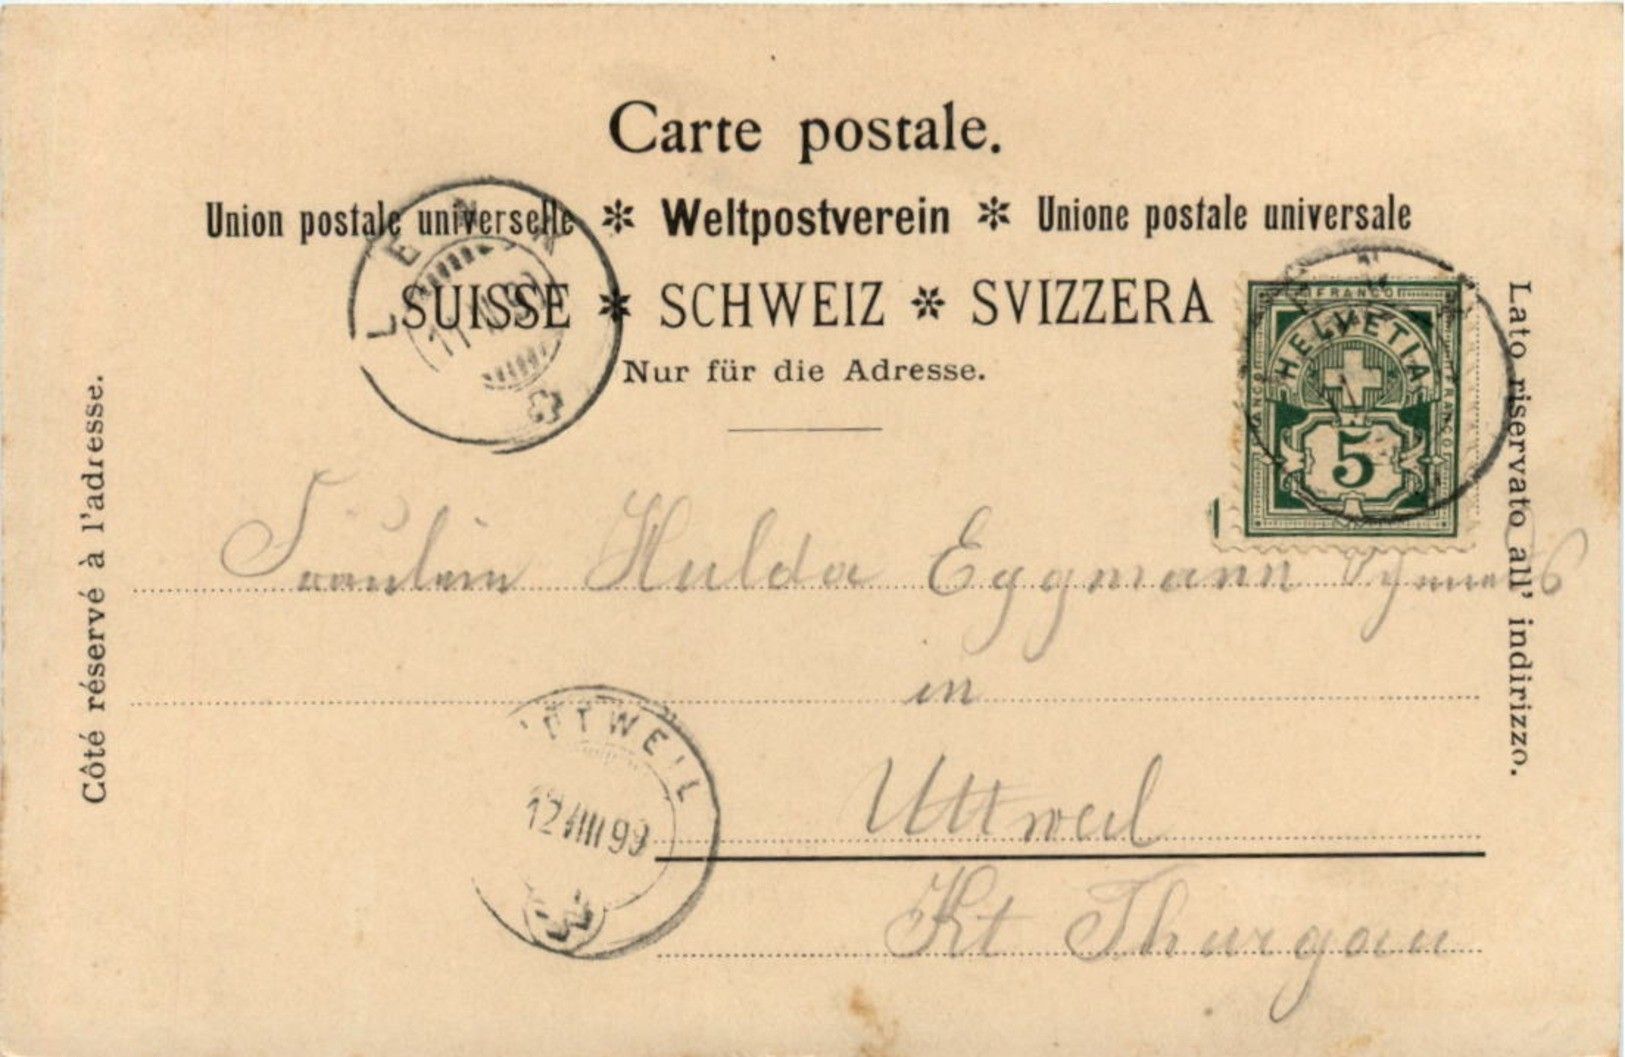 Carte postale.
Union postale universelle ✻ Weltpostverein ✻ Unione postale universale
SUISSE ✻ SCHWEIZ ✻ SVIZZERA
Nur für die Adresse.
Côté réservé à l'adresse.
Lato riservato all' indirizzo.
LENZ
FRANCO
HELVETIA
FRANCO
FRANCO
5
Fräulein Hulda Eggmann
in
Uttweil
Kt Thurgau
UTTWEIL
12 VIII 99